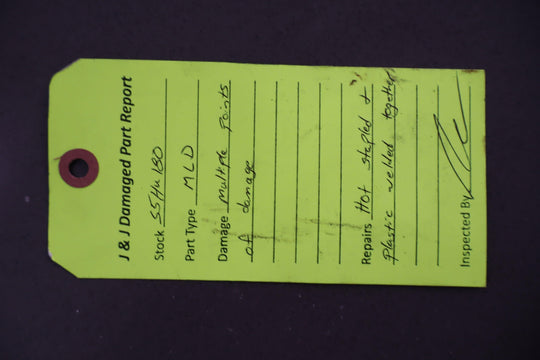 J & J Damaged Part Report
Stock SSHu180
Part Type MLD
Damage Multiple Points
of damage
Repairs Hot stapled +
Plastic welded together
Inspected By